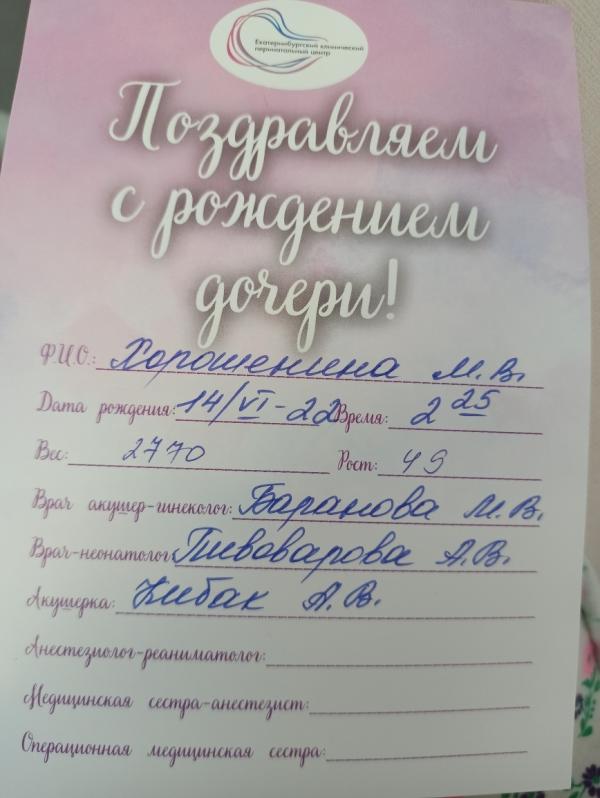 Екатеринбургский клинический
перинатальный центр
Поздравляем
с рождением
дочери!
Ф.И.О.: Хорошенина М.В.
Дата рождения: 14/VI-22 Время: 2 25
Вес: 2770 Рост: 49
Врач акушер-гинеколог: Баранова М.В.
Врач-неонатолог: Пивоварова А.В.
Акушерка: Кибак А.В.
Анестезиолог-реаниматолог:
Медицинская сестра-анестезист:
Операционная медицинская сестра: